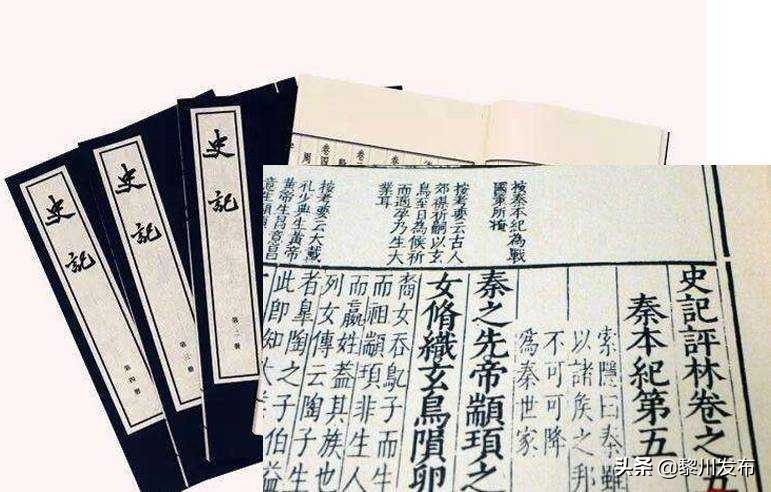 史記
第四册
史記
第三册
史記
第二册
按秦本紀為戰
按考要云古人
郊禖祈嗣以玄
鳥至日為候祈
而遇孕乃生大
業耳
按考要云大戴
孔少典生黃帝
黃帝生昌意昌
史記評林卷之五
秦本紀第五
索隱曰秦雖
以諸侯之邦
不可可降
為秦世家
秦之先帝顓頊之
女脩織玄鳥隕卵
裔女吞鳦子而生
而祖顓頊非生人
而嬴姓蓋其族也
列女傳云陶子生
者皐陶之子伯益
此即知大
头条 @黎川发布